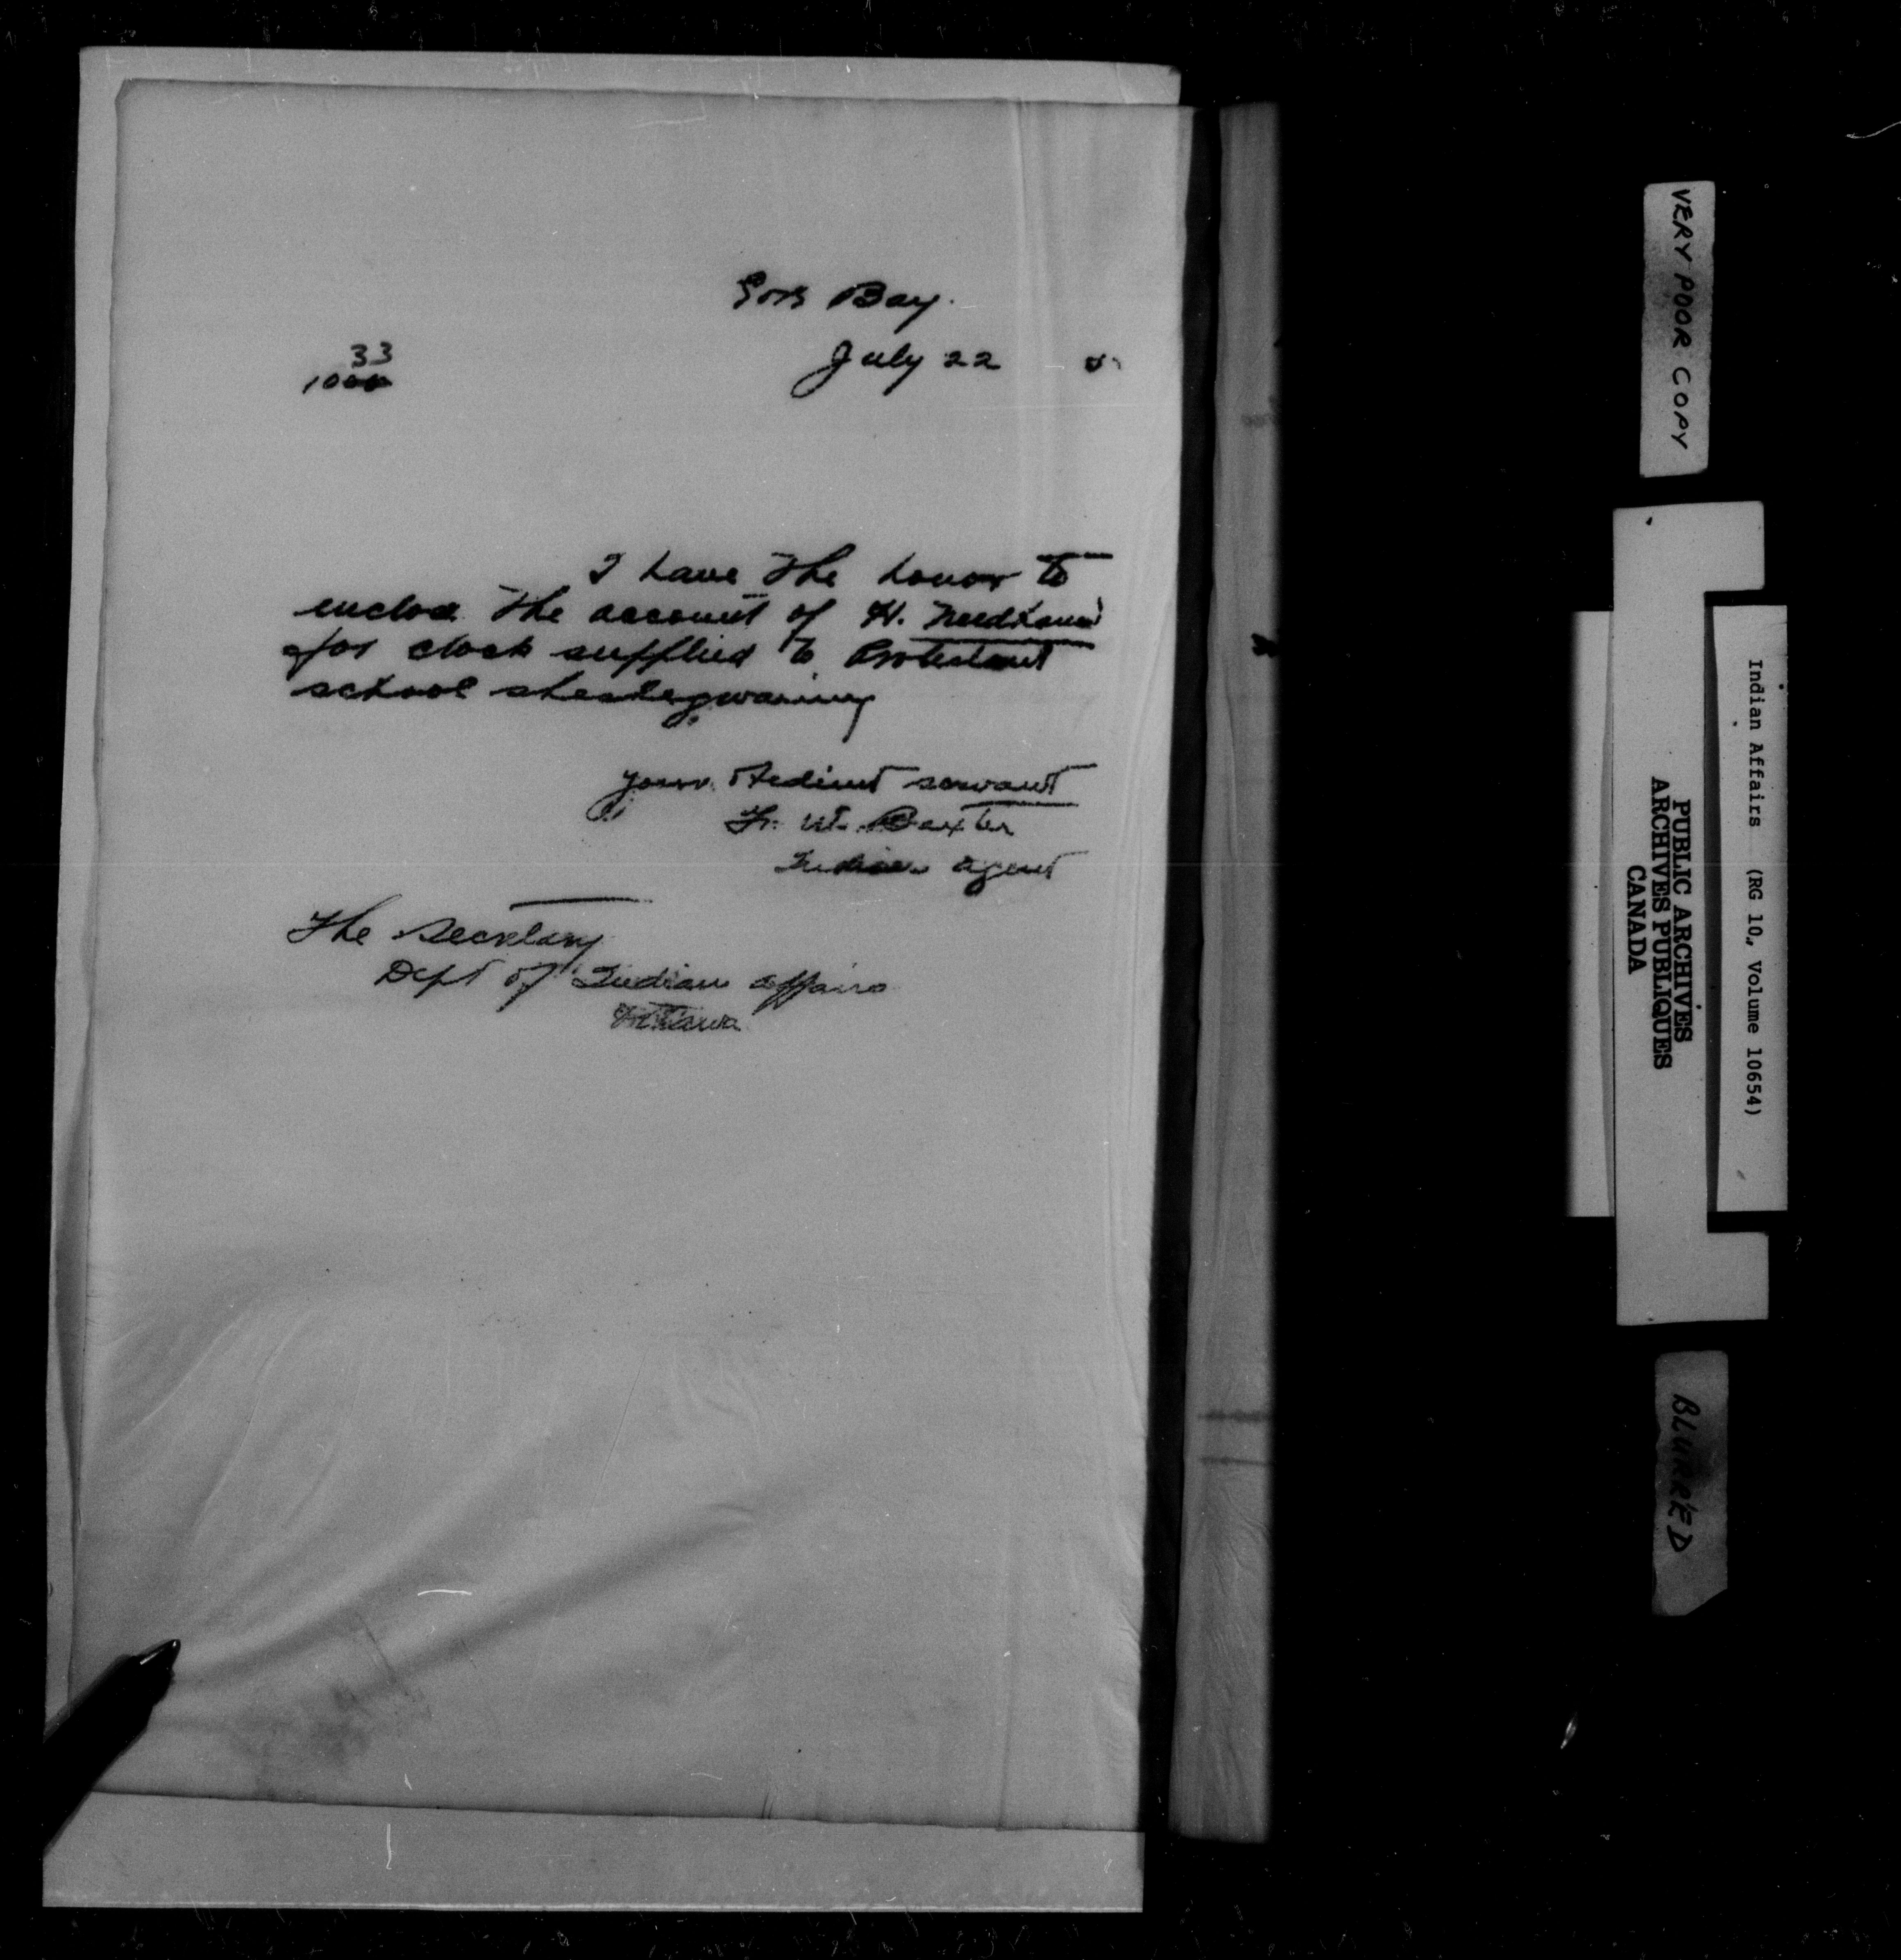 Gore Bay.
33
1000
July 22
I have the honor to
enclose the account of H. Needham
for clock supplied to Protestant
school sheshegwaning
your obedient servant
W. Baxter
Indian agent
The Secretary
Dept of Indian affairs
Ottawa
VERY POOR COPY
Indian Affairs (RG 10, Volume 10654)
PUBLIC ARCHIVES
ARCHIVES PUBLIQUES
CANADA
BLURRED